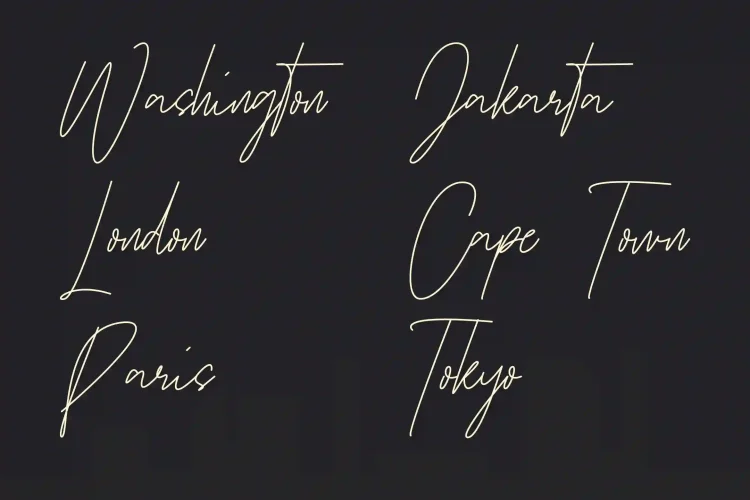 Washington
London
Paris
Jakarta
Cape Town
Tokyo